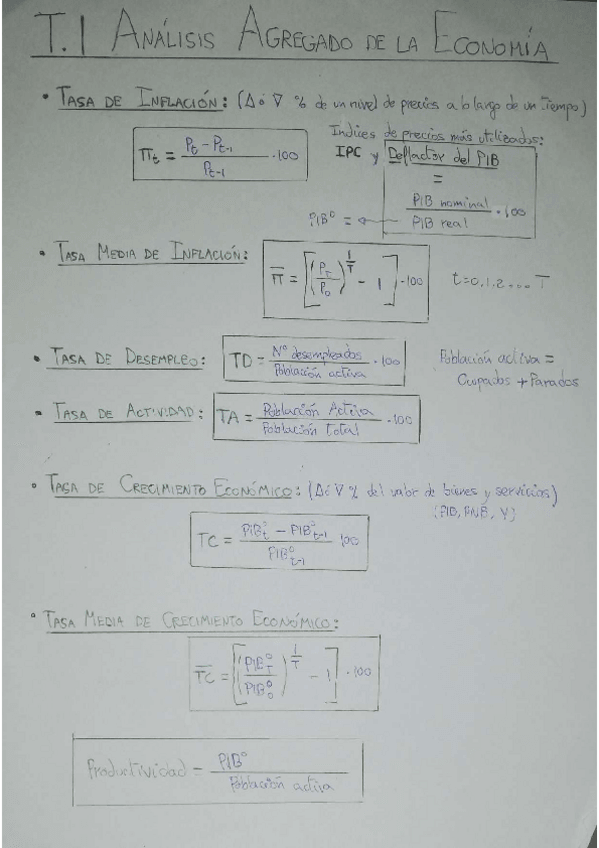 T.1 ANÁLISIS AGREGADO DE LA ECONOMÍA
• TASA DE INFLACIÓN: (Δ ó ∇ % de un nivel de precios a lo largo de un tiempo)
Indices de precios más utilizados:
Πt = (Pt - Pt-1) / Pt-1 · 100
IPC y Deflactor del PIB
=
PIB nominal / PIB real · 100
PIB⁰ = ←
• TASA MEDIA DE INFLACIÓN:
Π̅ = [(PT / P0)^(1/T) - 1] · 100
t=0,1,2.... T
• TASA DE DESEMPLEO:
TD = Nº desempleados / Población activa · 100
Población activa =
Ocupados + Parados
• TASA DE ACTIVIDAD:
TA = Población Activa / Población total · 100
• TASA DE CRECIMIENTO ECONÓMICO: (Δ ó ∇ % del valor de bienes y servicios)
(PIB, PNB, Y)
TC = (PIB⁰t - PIB⁰t-1) / PIB⁰t-1 · 100
• TASA MEDIA DE CRECIMIENTO ECONÓMICO:
T̅C̅ = [(PIB⁰T / PIB⁰0)^(1/T) - 1] · 100
Productividad = PIB⁰ / Población activa